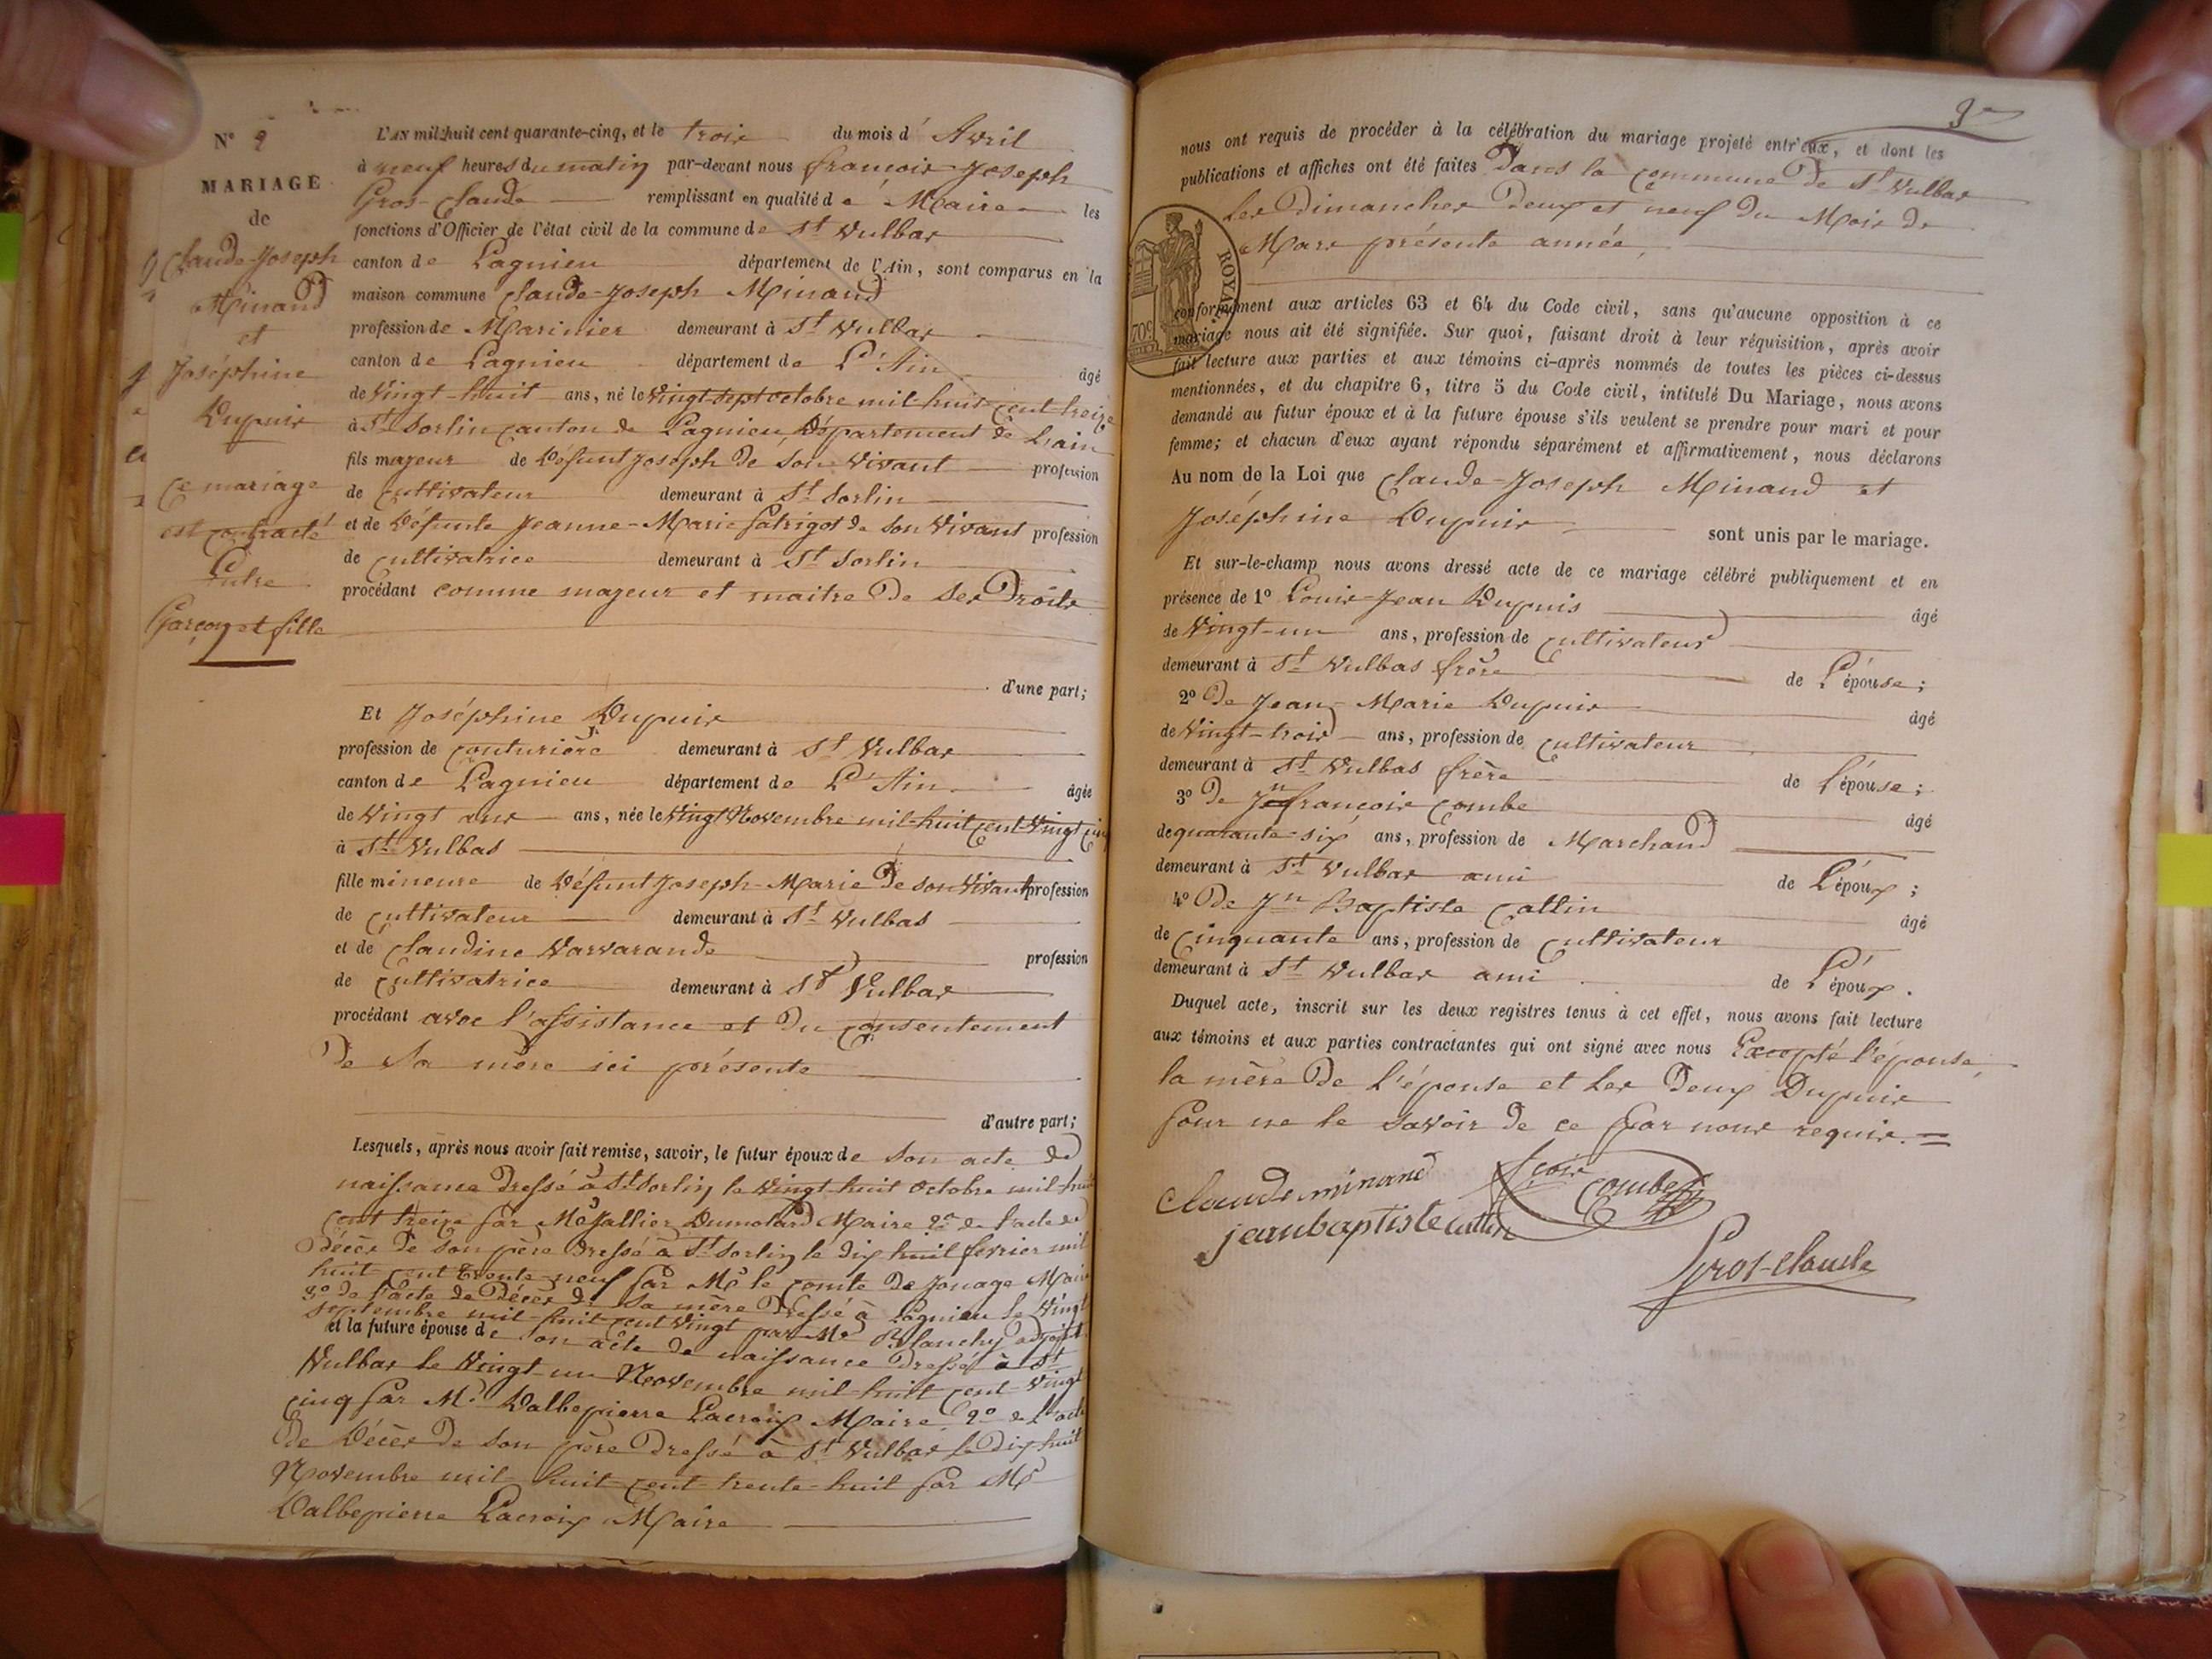 N° 2
MARIAGE
de
Claude-Joseph
Minand
et
Joséphine
Dupuis
Ce mariage
est contracté
Entre
Garçon et fille
L'AN mil huit cent quarante-cinq, et le trois du mois d' Avril
à neuf heures du matin par-devant nous francois-Joseph
Gros-Claude remplissant en qualité de Maire les
fonctions d'Officier de l'état civil de la commune de St Vulbas
canton de Lagnieu département de l'Ain, sont comparus en la
maison commune Claude-Joseph Minand
profession de Marinier demeurant à St Vulbas
canton de Lagnieu département de L'Ain âgé
de Vingt-huit ans, né le Vingt sept octobre mil huit cent treize
à St Sorlin canton de Lagnieu, Département de L'ain
fils majeur de Défunt Joseph de son vivant profession
de Cultivateur demeurant à St Sorlin
et de Défunte Jeanne-Marie fatrigot de son Vivant profession
de Cultivatrice demeurant à St Sorlin
procédant comme majeur et maitre De ses Droits
d'une part;
Et Joséphine Dupuis
profession de Couturière demeurant à St Vulbas
canton de Lagnieu département de L'Ain âgée
de Vingt ans, née le Vingt Novembre mil huit Cent Vingt cinq
à St Vulbas
fille mineure de Défunt Joseph-Marie De son Vivant profession
de Cultivateur demeurant à St Vulbas
et de Claudine Varvarande profession
de Cultivatrice demeurant à St Vulbas
procédant avec l'assistance et Du Consentement
De Sa mère ici présente
d'autre part;
Lesquels, après nous avoir fait remise, savoir, le futur époux de son acte de
naissance Dressé à St Sorlin le Vingt-huit octobre mil huit
Cent treize par Mr Vallier Dumolard Maire 2° de l'acte de
Décès De son père Dressé à St Sorlin le dix huit fevrier mil
huit Cent trente neuf par Mr le Comte De Jouage Maire
3° de l'acte de Décès de sa mère Dressé à Lagnieu le Vingt
septembre mil huit cent Vingt par Mr Blanchy adjoint
et la future épouse de son acte de naissance Dressé à St
Vulbas le Vingt-un Novembre mil-huit Cent-Vingt
Cinq par Mr Dalbepierre Lacroix Maire 2° de l'acte
De Décès De son père Dressé à St Vulbas le Dix huit
Novembre mil huit cent trente-huit par Mr
Dalbepierre Lacroix Maire
nous ont requis de procéder à la célébration du mariage projeté entr'eux, et dont les
publications et affiches ont été faites Dans la Commune De St Vulbas
Les Dimanches Deux et neuf Du Mois De
Mars présente année
ROYAL
70c.
conformément aux articles 63 et 64 du Code civil, sans qu'aucune opposition à ce
mariage nous ait été signifiée. Sur quoi, faisant droit à leur réquisition, après avoir
fait lecture aux parties et aux témoins ci-après nommés de toutes les pièces ci-dessus
mentionnées, et du chapitre 6, titre 5 du Code civil, intitulé Du Mariage, nous avons
demandé au futur époux et à la future épouse s'ils veulent se prendre pour mari et pour
femme; et chacun d'eux ayant répondu séparément et affirmativement, nous déclarons
Au nom de la Loi que Claude-Joseph Minand et
Joséphine Dupuis sont unis par le mariage.
Et sur-le-champ nous avons dressé acte de ce mariage célébré publiquement et en
présence de 1° Louis-Jean Dupuis âgé
de Vingt-un ans, profession de Cultivateur
demeurant à St Vulbas frère de L'épouse;
2° De Jean-Marie Dupuis âgé
de Vingt-trois ans, profession de Cultivateur
demeurant à St Vulbas frère de l'épouse;
3° De Jn françois Combe âgé
de quarante-six ans, profession de Marchand
demeurant à St Vulbas ami de L'époux;
4° De Jn Baptiste Cattin âgé
de Cinquante ans, profession de Cultivateur
demeurant à St Vulbas ami de L'époux.
Duquel acte, inscrit sur les deux registres tenus à cet effet, nous avons fait lecture
aux témoins et aux parties contractantes qui ont signé avec nous Excepté l'épouse,
la mère De L'épouse et Les Deux Dupuis
pour ne le savoir De ce par nous requis.
Claude minand fçois Combe
jeanbaptiste cattin
Gros-Claude